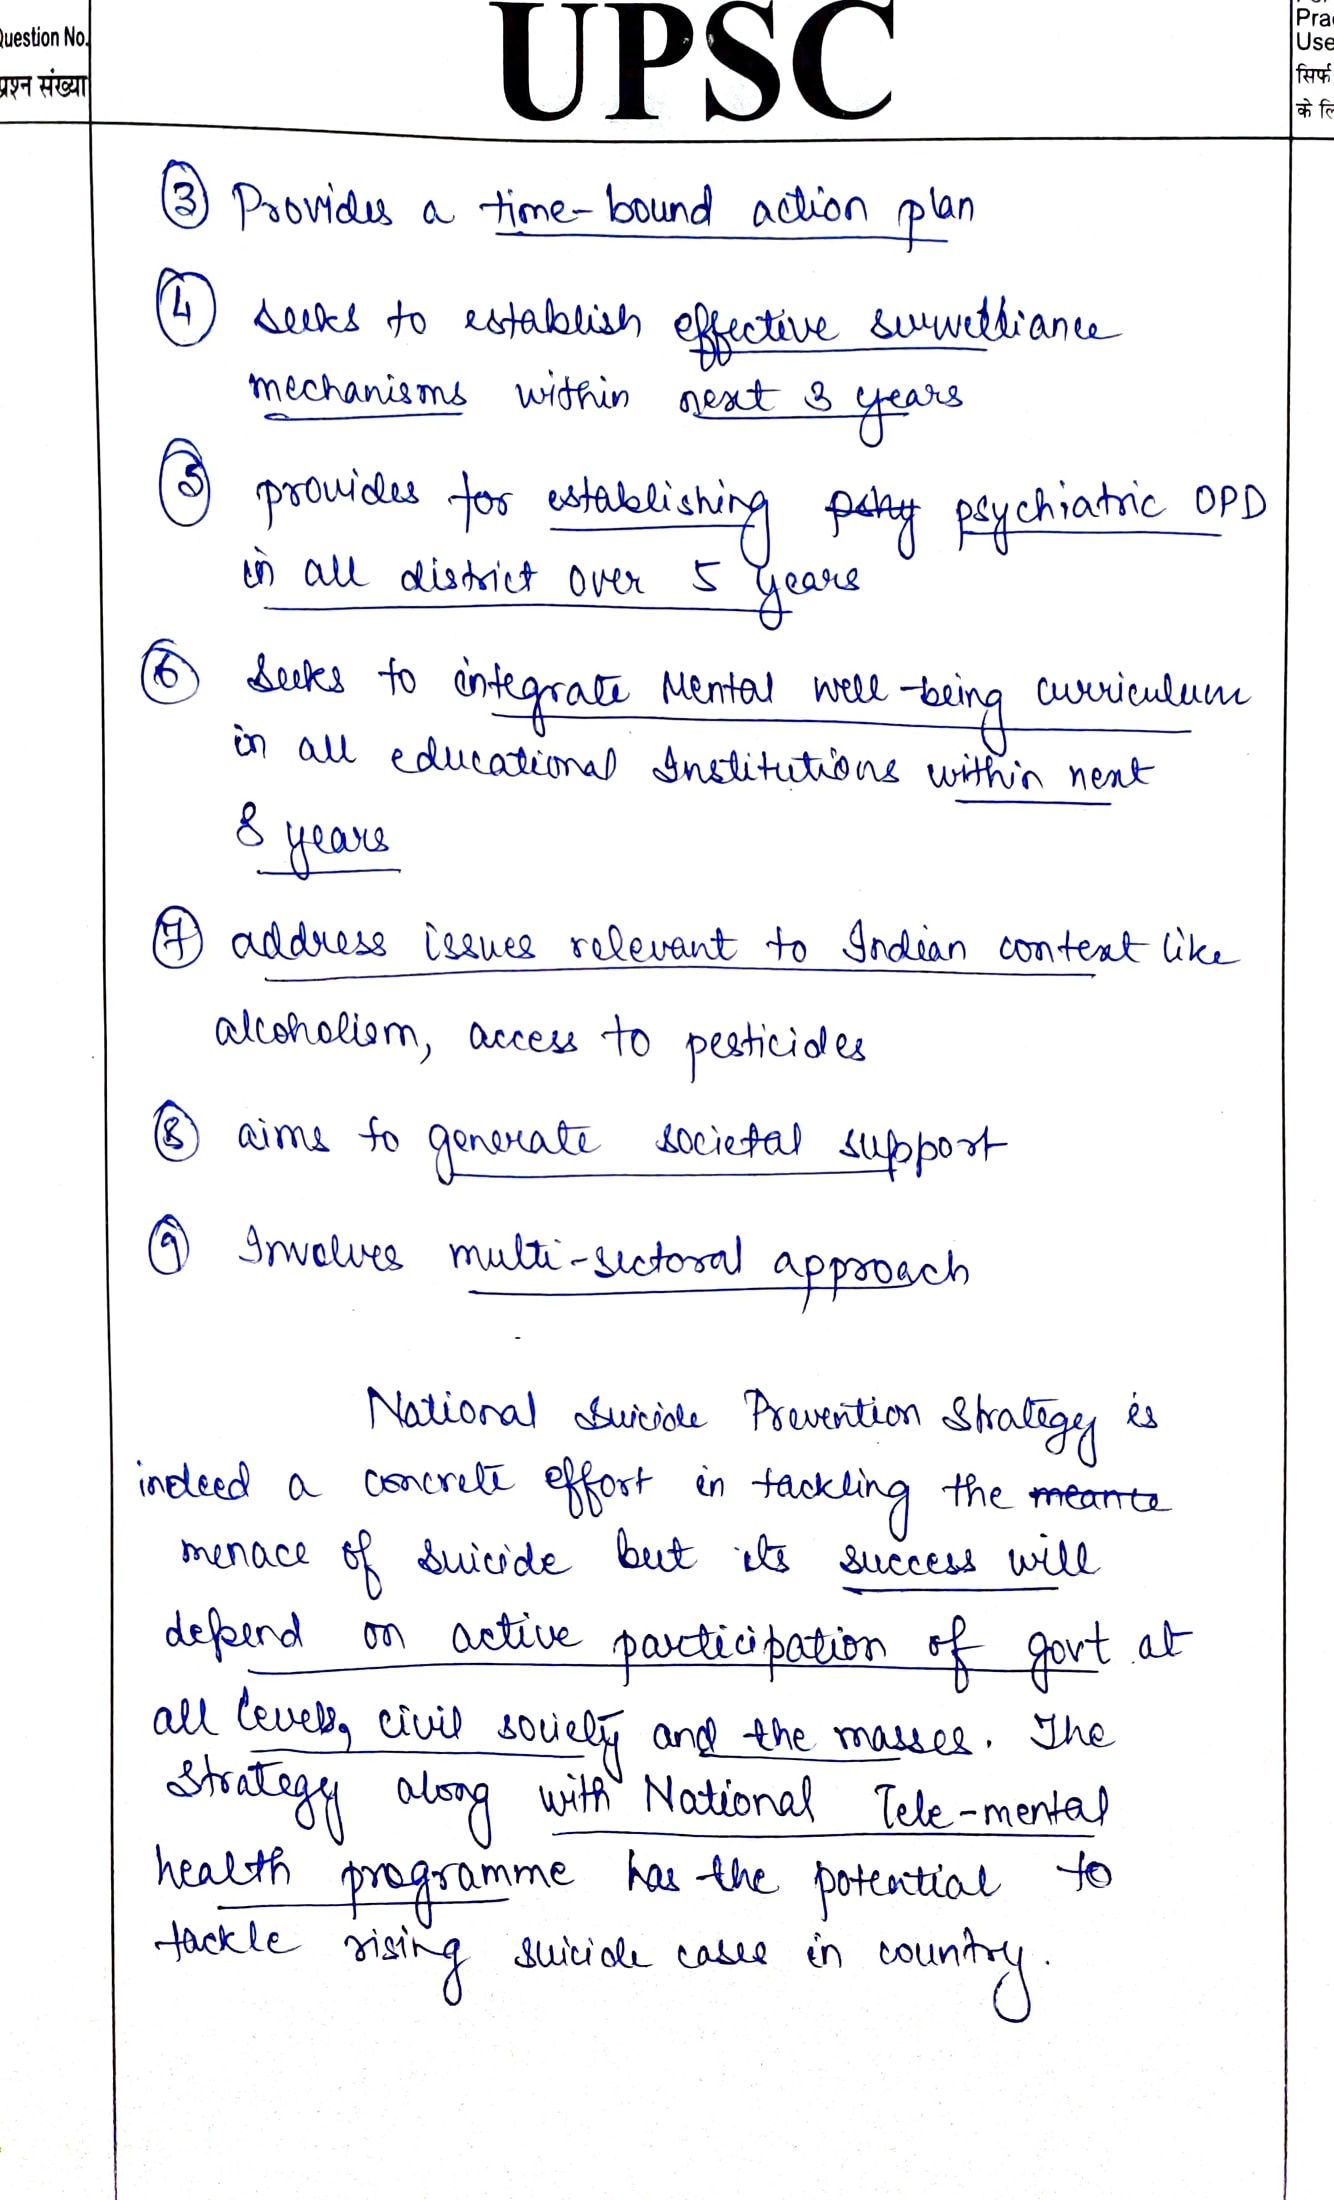 Question No.
प्रश्न संख्या
UPSC
Pra
Use
सिर्फ
के लि
③ Provides a time-bound action plan
④ seeks to establish effective surveilliance
mechanisms within next 3 years
⑤ provides for establishing pshy psychiatric OPD
in all district over 5 years
⑥ seeks to integrate Mental well-being curriculum
in all educational Institutions within next
8 years
⑦ address issues relevant to Indian context like
alcoholism, access to pesticides
⑧ aims to generate societal support
⑨ Involves multi-sectoral approach
National Suicide Prevention Strategy is
indeed a concrete effort in tackling the meante
menace of suicide but its success will
depend on active participation of govt at
all levels, civil society and the masses. The
strategy along with National Tele-mental
health programme has the potential to
tackle rising suicide cases in country.